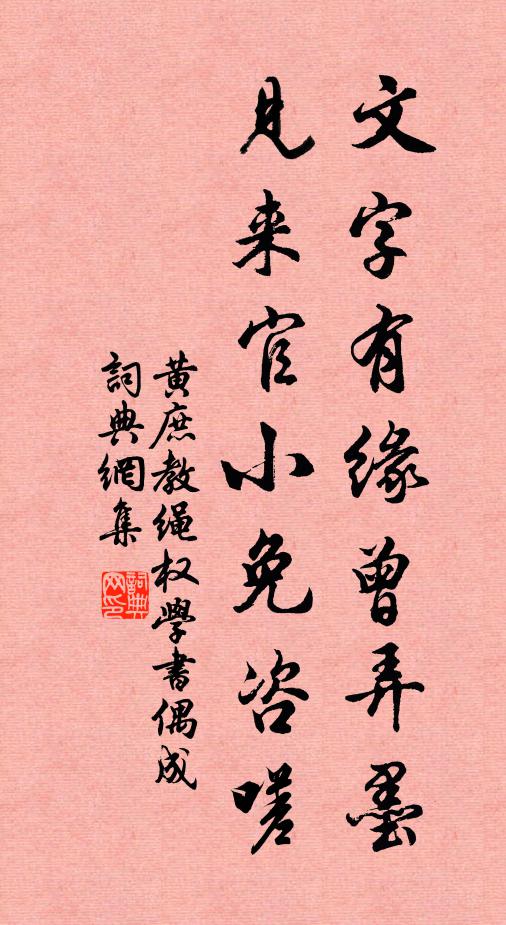 文字有缘曾弄墨
见来官小免咨嗟
黄庶教绳权学书偶成
詞典網集
詞典网印